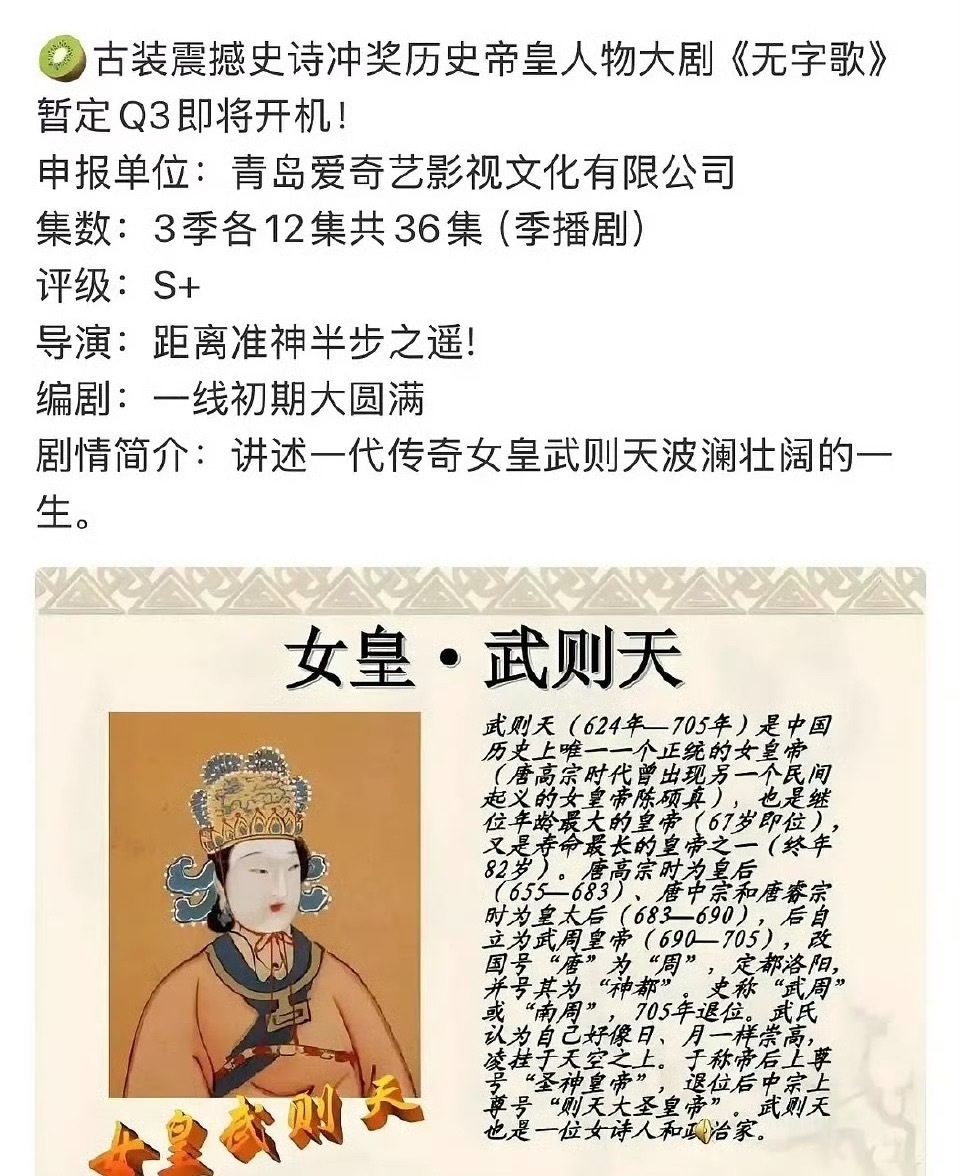 古装震撼史诗冲奖历史帝皇人物大剧《无字歌》
暂定Q3即将开机！
申报单位：青岛爱奇艺影视文化有限公司
集数：3季各12集共36集（季播剧）
评级：S+
导演：距离准神半步之遥！
编剧：一线初期大圆满
剧情简介：讲述一代传奇女皇武则天波澜壮阔的一
生。
女皇·武则天
武则天（624年—705年）是中国
历史上唯一一个正统的女皇帝
（唐高宗时代曾出现另一个民间
起义的女皇帝陈硕真），也是继
位年龄最大的皇帝（67岁即位），
又是寿命最长的皇帝之一（终年
82岁）。唐高宗时为皇后
（655—683）、唐中宗和唐睿宗
时为皇太后（683—690），后自
立为武周皇帝（690—705），改
国号“唐”为“周”，定都洛阳，
并号其为“神都”。史称“武周”
或“南周”，705年退位。武氏
认为自己好像日、月一样崇高，
凌挂于天空之上。于称帝后上尊
号“圣神皇帝”，退位后中宗上
尊号“则天大圣皇帝”。武则天
也是一位女诗人和政治家。
女皇武则天